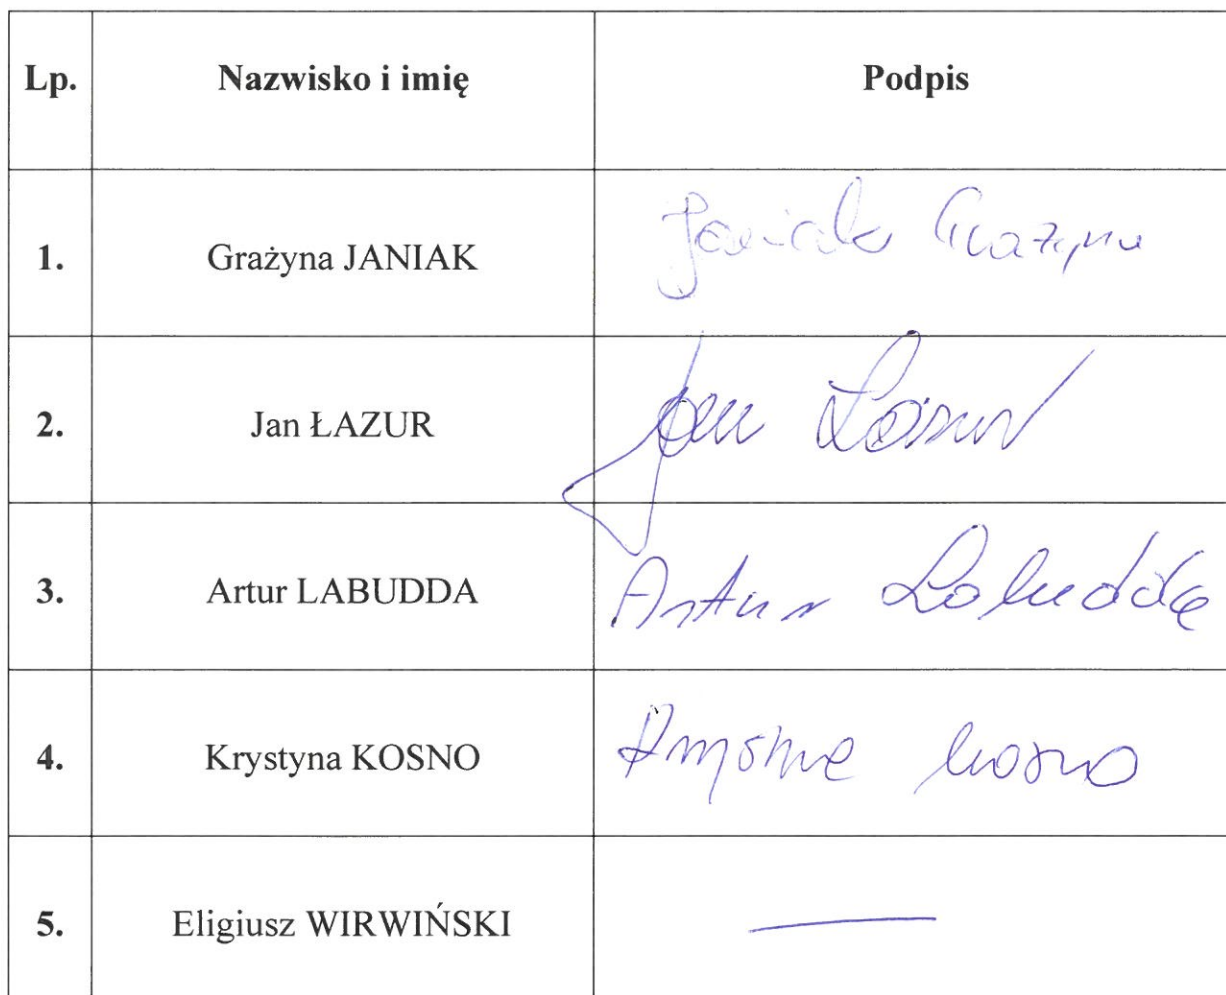 Lp. Nazwisko i imię Podpis
1. Grażyna JANIAK Janiak Grażyna
2. Jan ŁAZUR Jan Łazur
3. Artur LABUDDA Artur Labudda
4. Krystyna KOSNO Krystyna Kosno
5. Eligiusz WIRWIŃSKI —